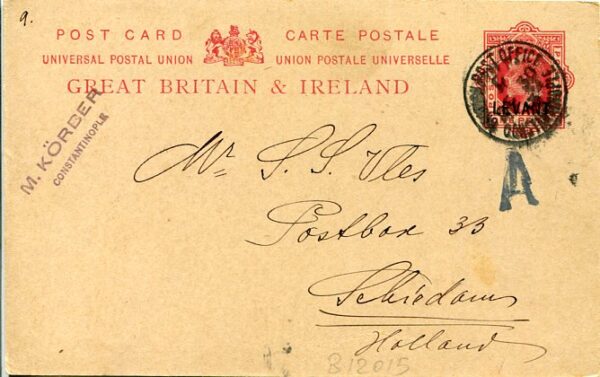 9.
POST CARD CARTE POSTALE
UNIVERSAL POSTAL UNION UNION POSTALE UNIVERSELLE
GREAT BRITAIN & IRELAND
POST OFFICE
LEVANT
M. KÖRBER
CONSTANTINOPLE
A
Mr. S. S. Vles
Postbox 33
Schiedam
Holland
B12015